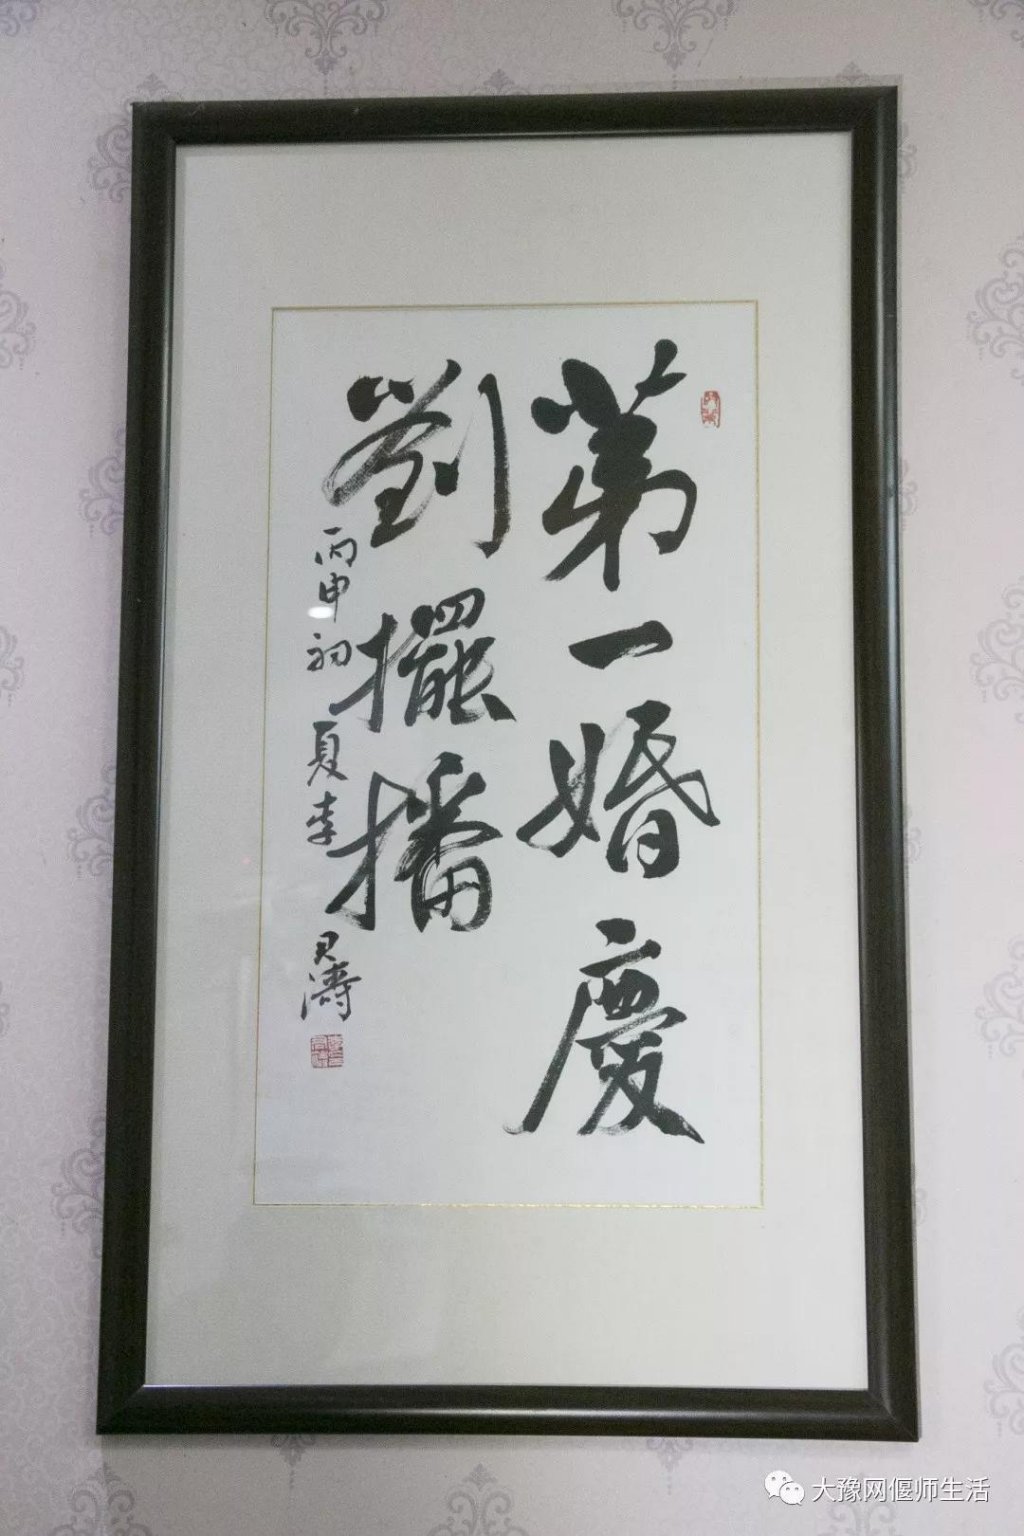 第一婚慶
劉擺播
丙申初夏李君濤
大豫网偃师生活